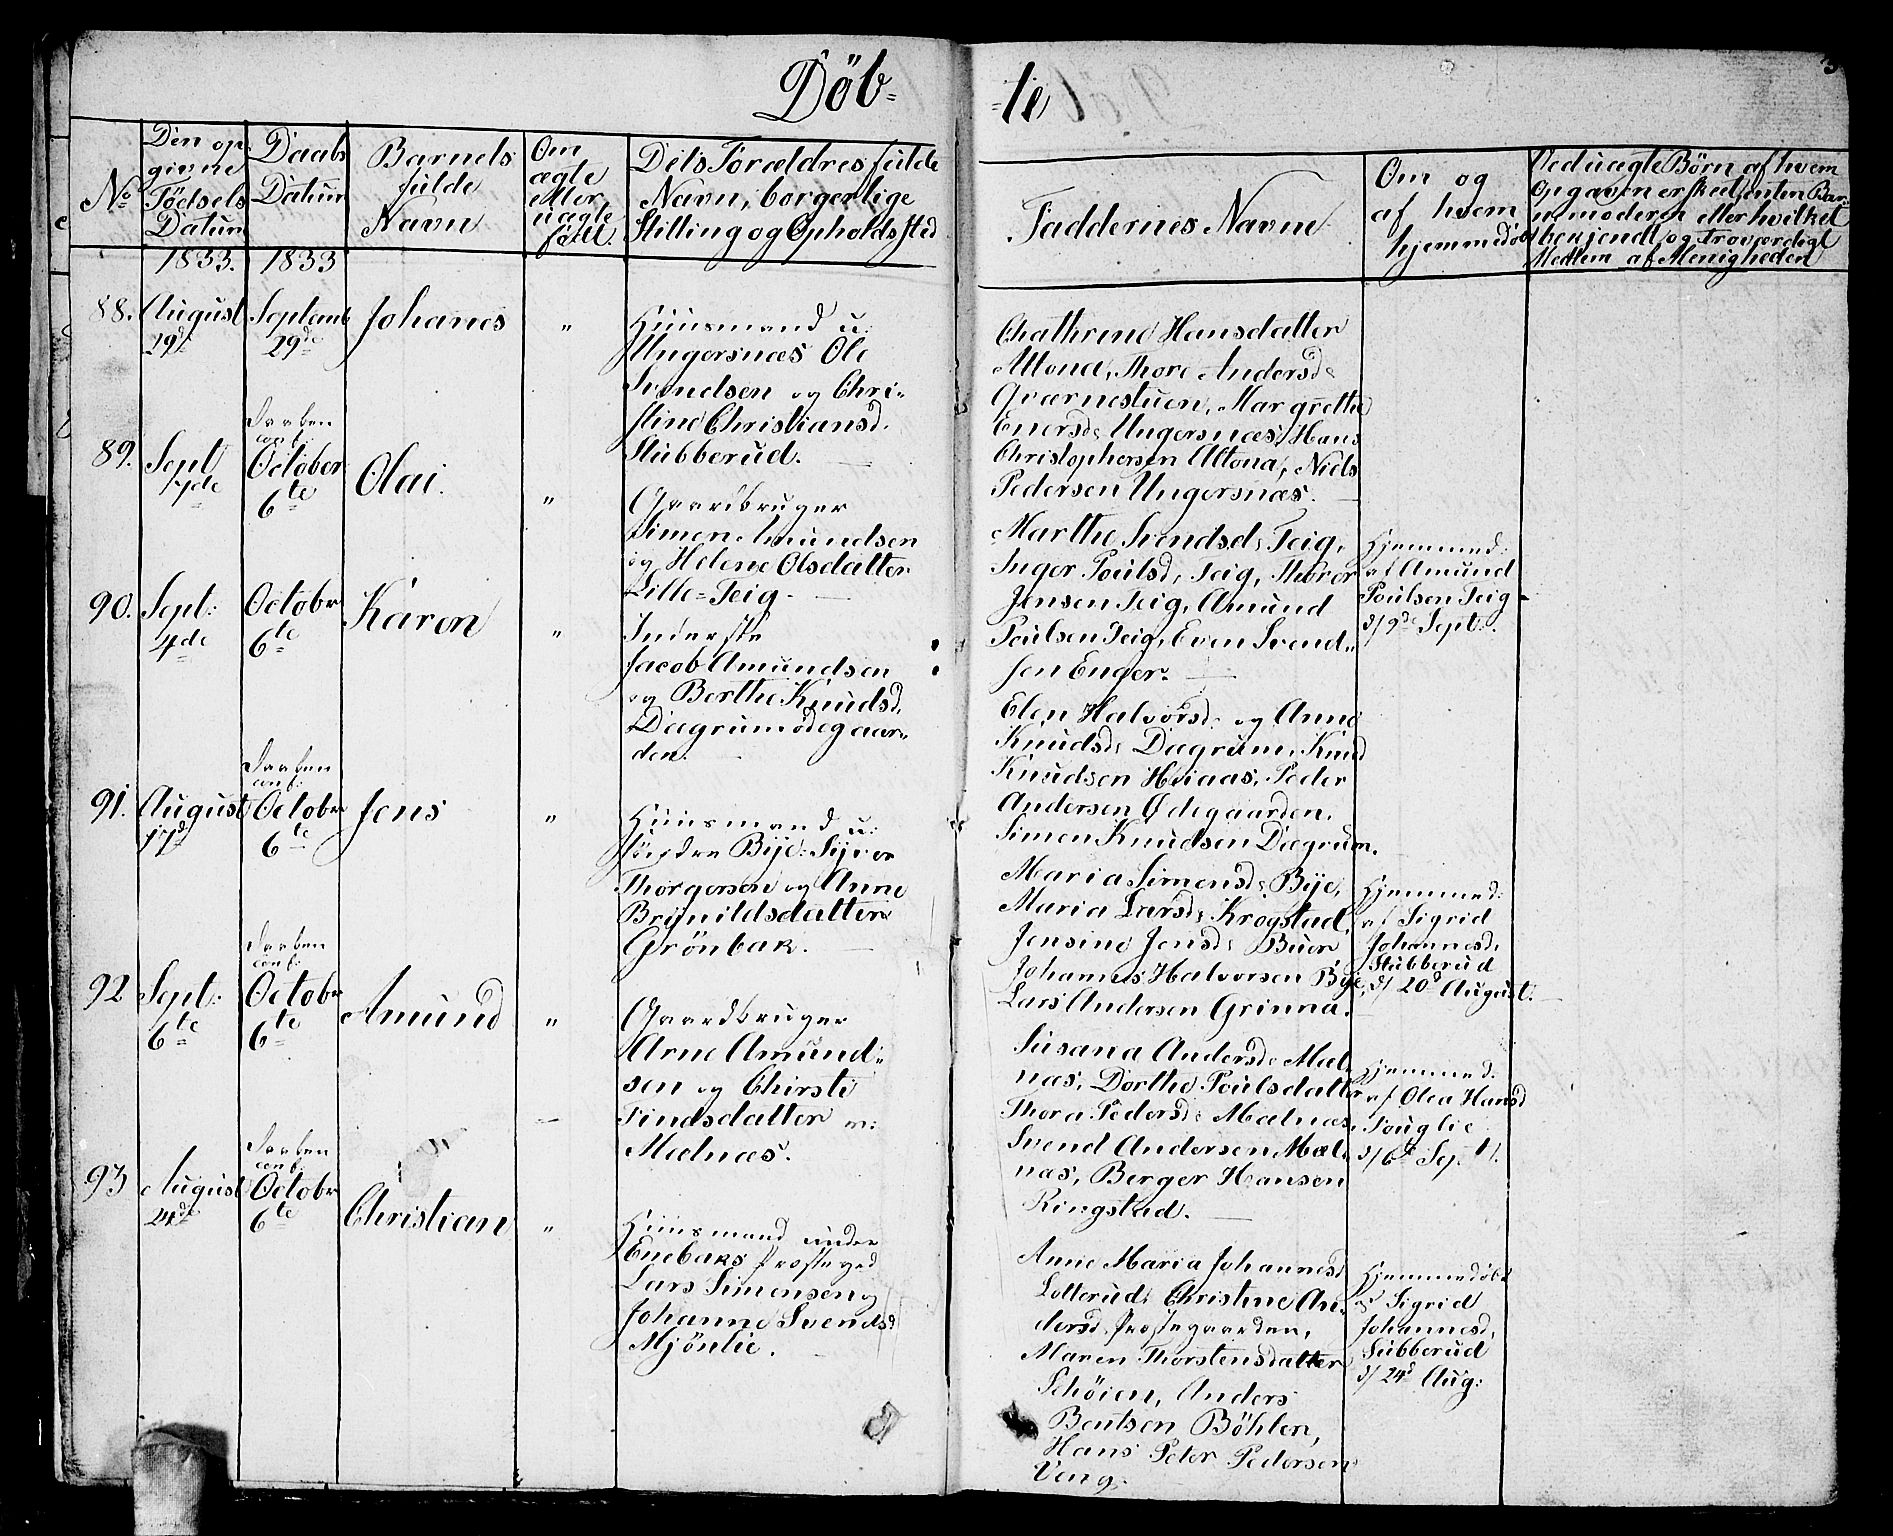 Döb-
-te
3
No
Den op-
givne
Fødsels
Datum
Daabs
Datum
Barnets
fulde
Navn
Om
ægte
eller
uægte
født.
Dets Forældres fulde
Navn, borgerlige
Stilling og Opholdssted
Faddernes Navne
Om og
af hvem
hjemmedøbt
Ved uægte Børn af hvem
Opgaven er skeet, enten Bar-
nemoderen eller hvilket
bekjendt og troværdigt
Medlem af Menigheden
1833.
1833
88.
August
29de
Septemb
29de
Johanes
"
Huusmand u:
Ungersnæs Ole
Svendsen og Chri-
stine Christiansd.
Stubberud.
Chathrine Hansdatter
Altona, Thore Andersd:
Qværnestuen, Margrethe
Enersd: Ungersnæs, Hans
Christophersen Altona, Niels
Pedersen Ungersnæs.
89.
Sept
7de
Daaben
conf:
October
6te
Olai.
"
Gaardbruger
Simen Amundsen
og Helene Olsdatter
Lille-Teig.
Marthe Svendsd: Teig,
Inger Poulsd, Teig, Thoror
Jensen Teig, Amund
Poulsen Teig, Even Svend-
sen Enger.
Hjemmed:
af Amund
Poulsen Teig
d/ 9de Sept:.
90.
Sept:
4de
Octobr
6te
Karen
"
Inderste
Jacob Amundsen
og Berthe Knudsd.
Dægrumødegaar-
den.
Elen Halvorsd: og Anne
Knudsd: Dægrum, Knud
Knudsen Huaas, Peder
Andersen Ødegaarden,
Simen Knudsen Dægrum.
91.
August
17d
Daaben
conf:
Octobr
6te
Jens
"
Huusmand u:
søndre Bye: Siver
Thorgersen og Anne
Brynildsdatter
Grönbak.
Maria Simensd: Bye,
Maria Larsd: Krogstad,
Jensine Jensd: Buer
Johannes Halvorsen Bye,
Lars Andersen Grinna.
Hjemmed:
af Sigrid
Johannesd,
Stubberud
d/ 20d August.
92
Sept:
6te
Daaben
conf:
Octobr
6te
Amund
"
Gaardbruger
Arne Amund-
sen og Chirsti
Findsdatter
Mælnæs.
Susana Andersd: Mæl-
næs, Dorthe Poulsdatter
Thora Pedersd: Mælnæs,
Svend Andersen Mæl-
næs, Berger Hansen
Ringstad.
Hjemmed:
af Olea Hansd
Fouglie
d/ 6te Sept.
93
August
24de
Daaben
conf:
Octobr
6te
Christian
"
Huusmand under
Enebaks Prestegd
Lars Simensen og
Johanne Svendsd
Mjönlie.
Anne Maria Johannesd
Lotterud, Christine An-
dersd Prestegaarden,
Maren Thorstensdatter
Schöien, Anders
Bentsen Böhlen,
Hans Peter Pedersen
Veng.
Hjemmedøbt
af Sigrid
Johannesd,
Subberud
d/ 24d Aug: